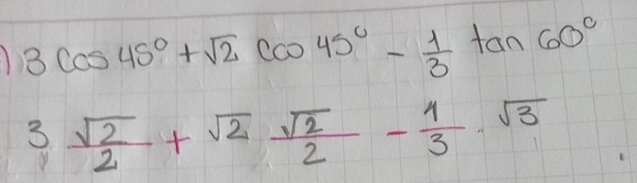 ) 3 cos 45° + √2 cos 45° - 1/3 tan 60°
3 √2/2 + √2 √2/2 - 1/3 . √3